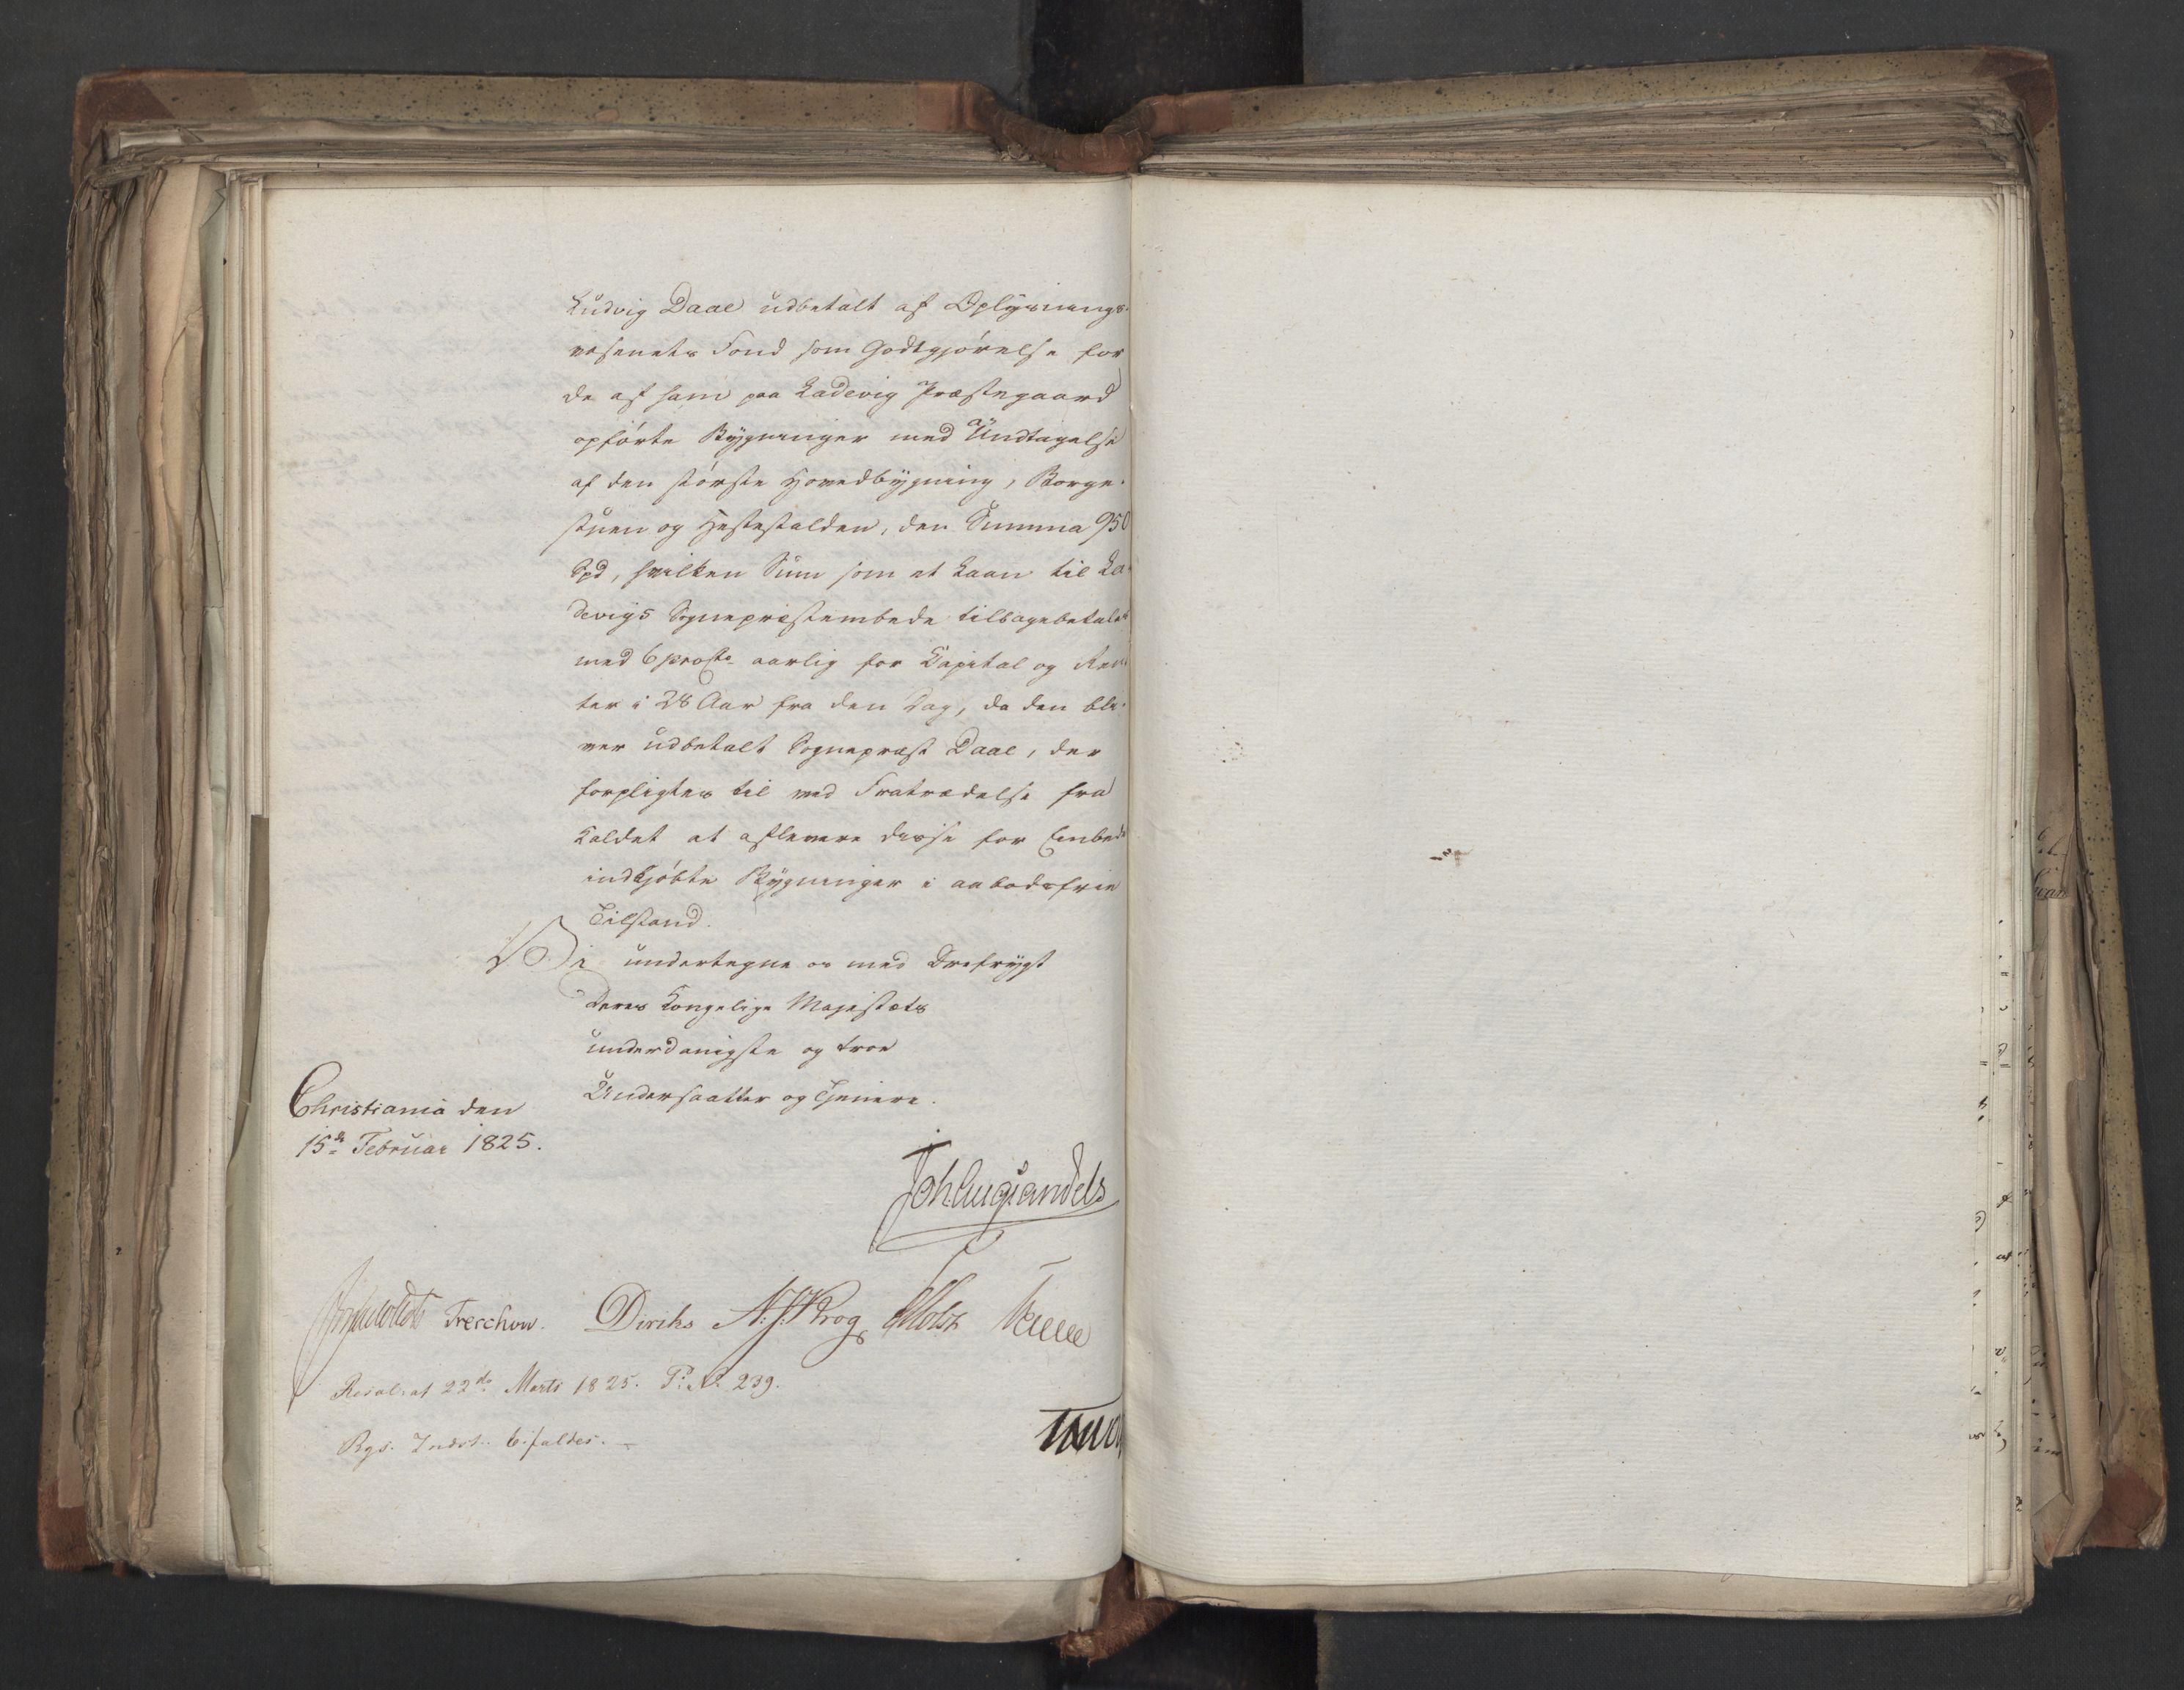 Ludvig Daae udbetalt af Oplysnings-
væsenets Fond som Godtgjörelse for
de af ham paa Ladevig Præstegaard
opförte Bygninger med Undtagelse
af den störste Hovedbygning, Borge-
stuen og Hestestalden, den Summa 950
Spd, hvilken Sum som et Laan til La-
devigs Sognepræstembede tilbagebetales
med 6 procto aarlig for Kapital og Ren-
ter i 28 Aar fra den Dag, da den bli-
ver udbetalt Sognepræst Daae, der
forpligtes til ved Fratrædelse fra
Kaldet at aflevere disse for Embedet
indkjöbte Bygninger i aabodsfrie
Tilstand.
Vi undertegne os med Ærefrygt
Deres Kongelige Majestæts
underdanigste og troe
Undersaatter og Tjenere.
Christiania den
15de Februar 1825.
Joh Aug Sandels
Treschow. Diriks N. J. Krog Motz
Resol: at 22de Marts 1825. P: No 239.
Rgs. Indst. bifaldes.